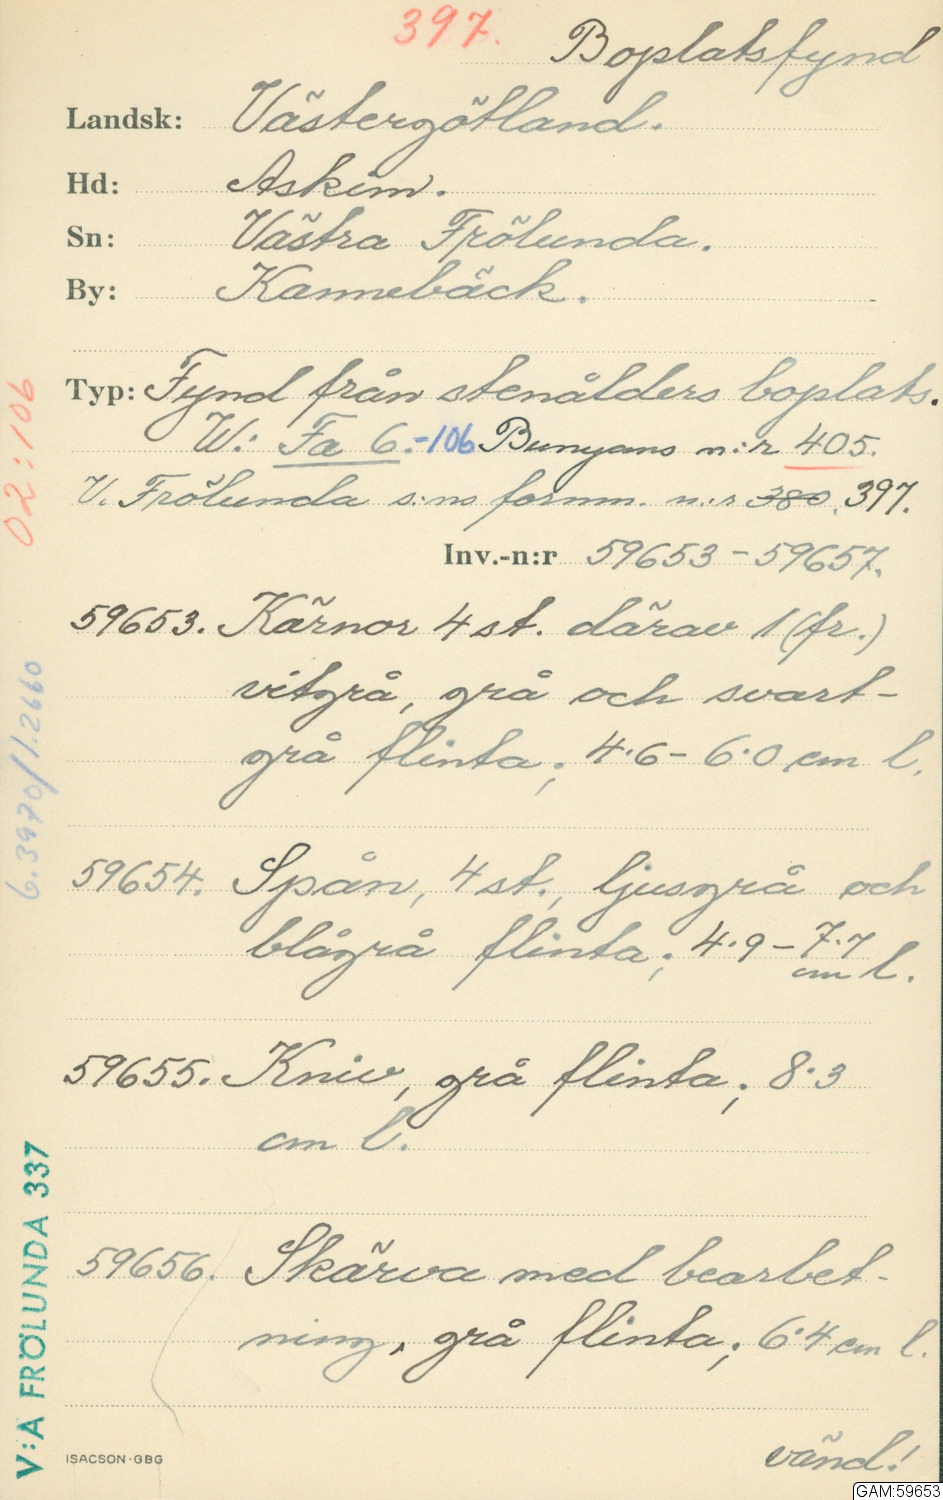 397.
Boplatsfynd
Landsk: Västergötland.
Hd: Askim.
Sn: Västra Frölunda.
By: Kannebäck.
Typ: Fynd från stenålders boplats.
W: Fa 6.-106 Bunyans n:r 405.
V. Frölunda s:ns fornm. n:r 380. 397.
Inv.-n:r 59653-59657.
59653. Kärnor 4 st. därav 1 (fr.)
vitgrå, grå och svart-
grå flinta; 4.6-6.0 cm l.
59654. Spån, 4 st., ljusgrå och
blågrå flinta; 4.9-7.7
cm l.
59655. Kniv, grå flinta; 8.3
cm l.
59656. Skärva med bearbet-
ning, grå flinta; 6.4 cm l.
vänd!
ISACSON·GBG
02:106
6.3970/1.2660
V:A FRÖLUNDA 337
GAM:59653